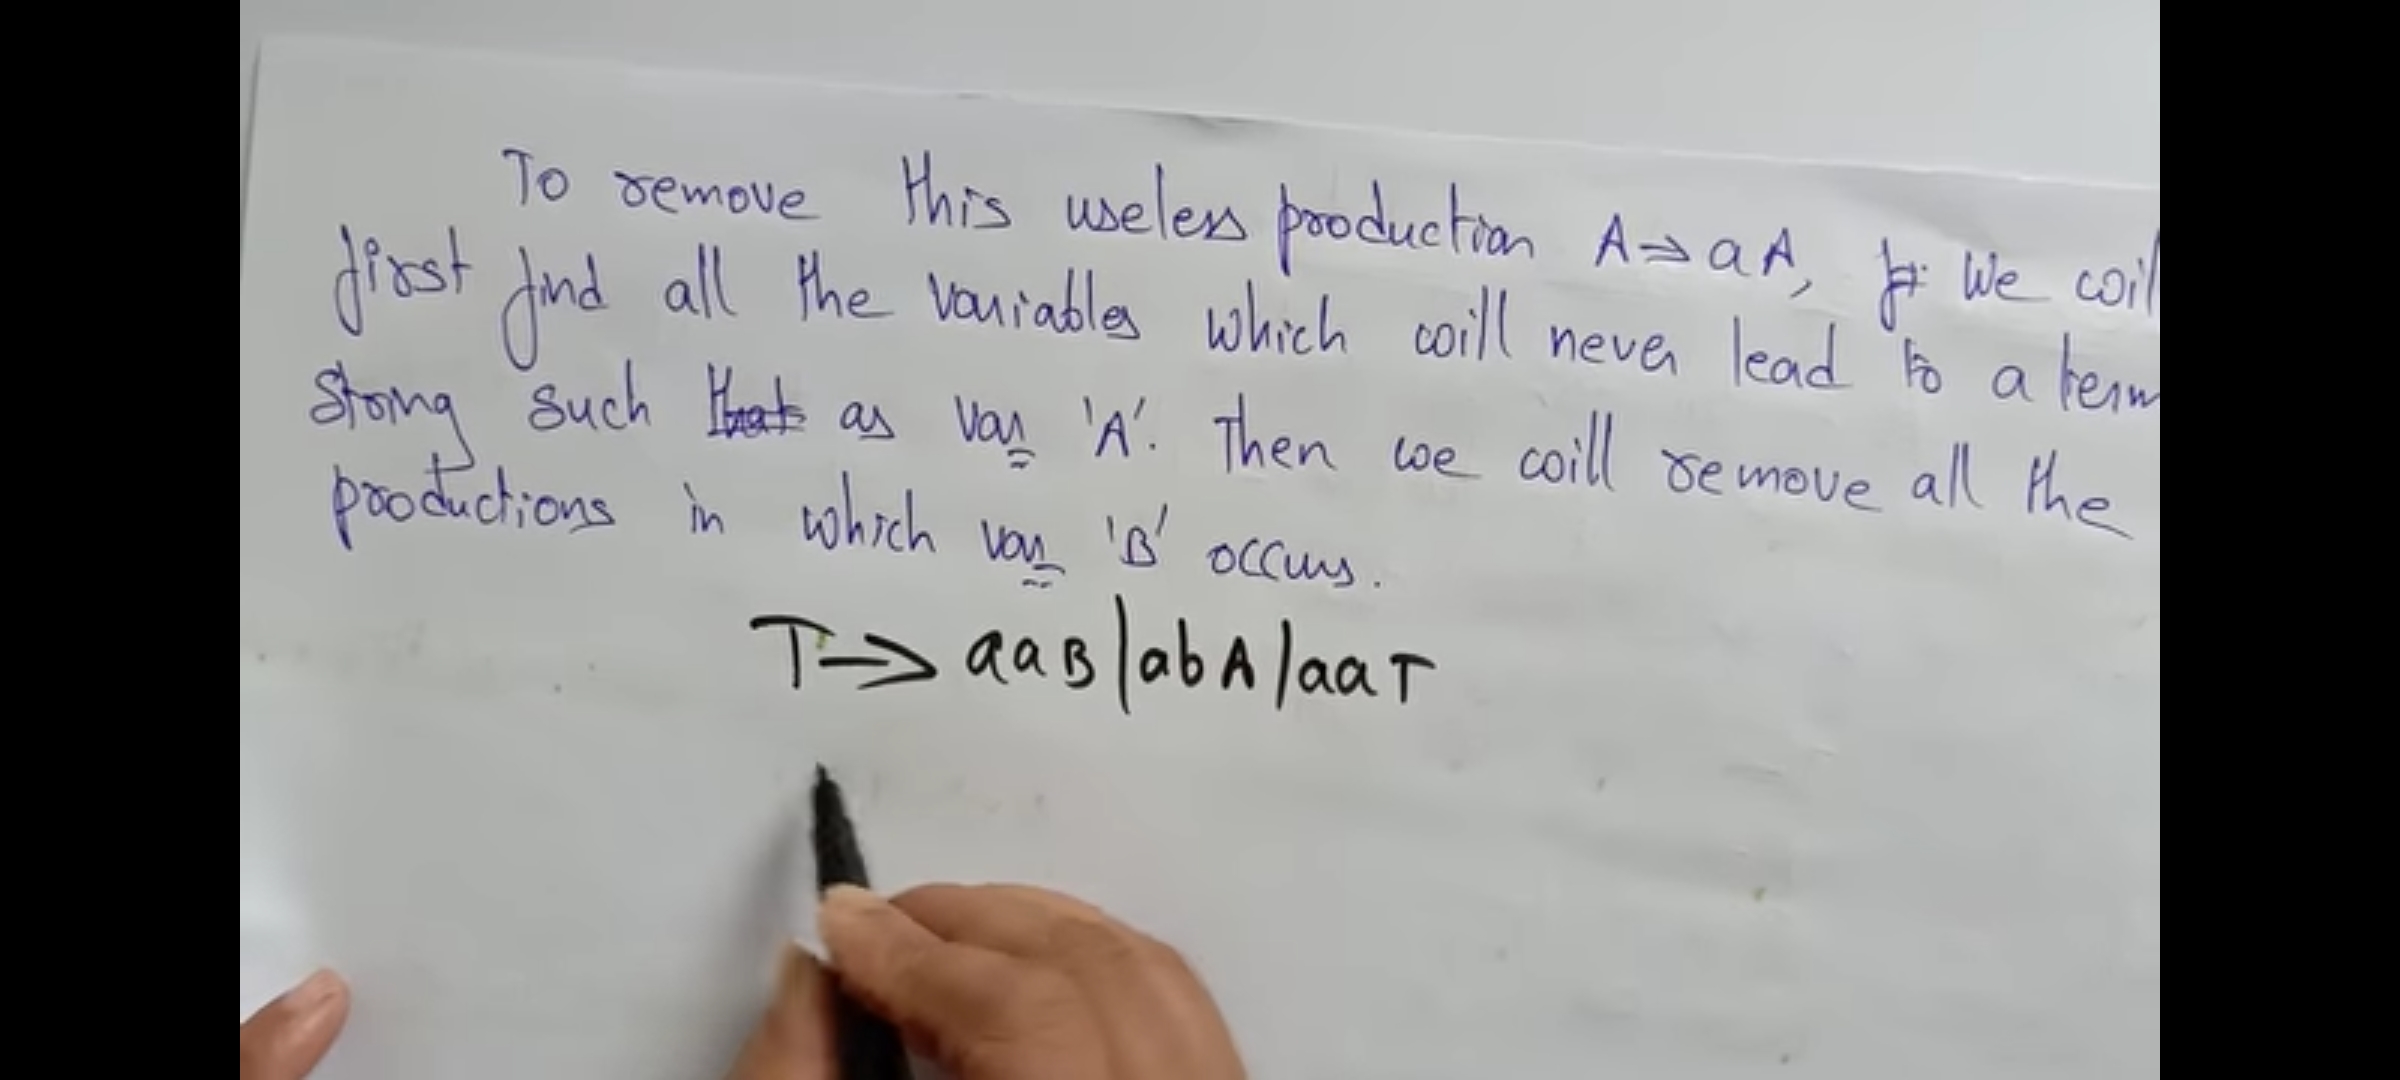 To remove this useless production A→aA, We
first find all the variables which will never lead to a
string such that as var 'A'. Then we will remove all the
productions in which var 'B' occurs.
T→ aaB|abA|aaT